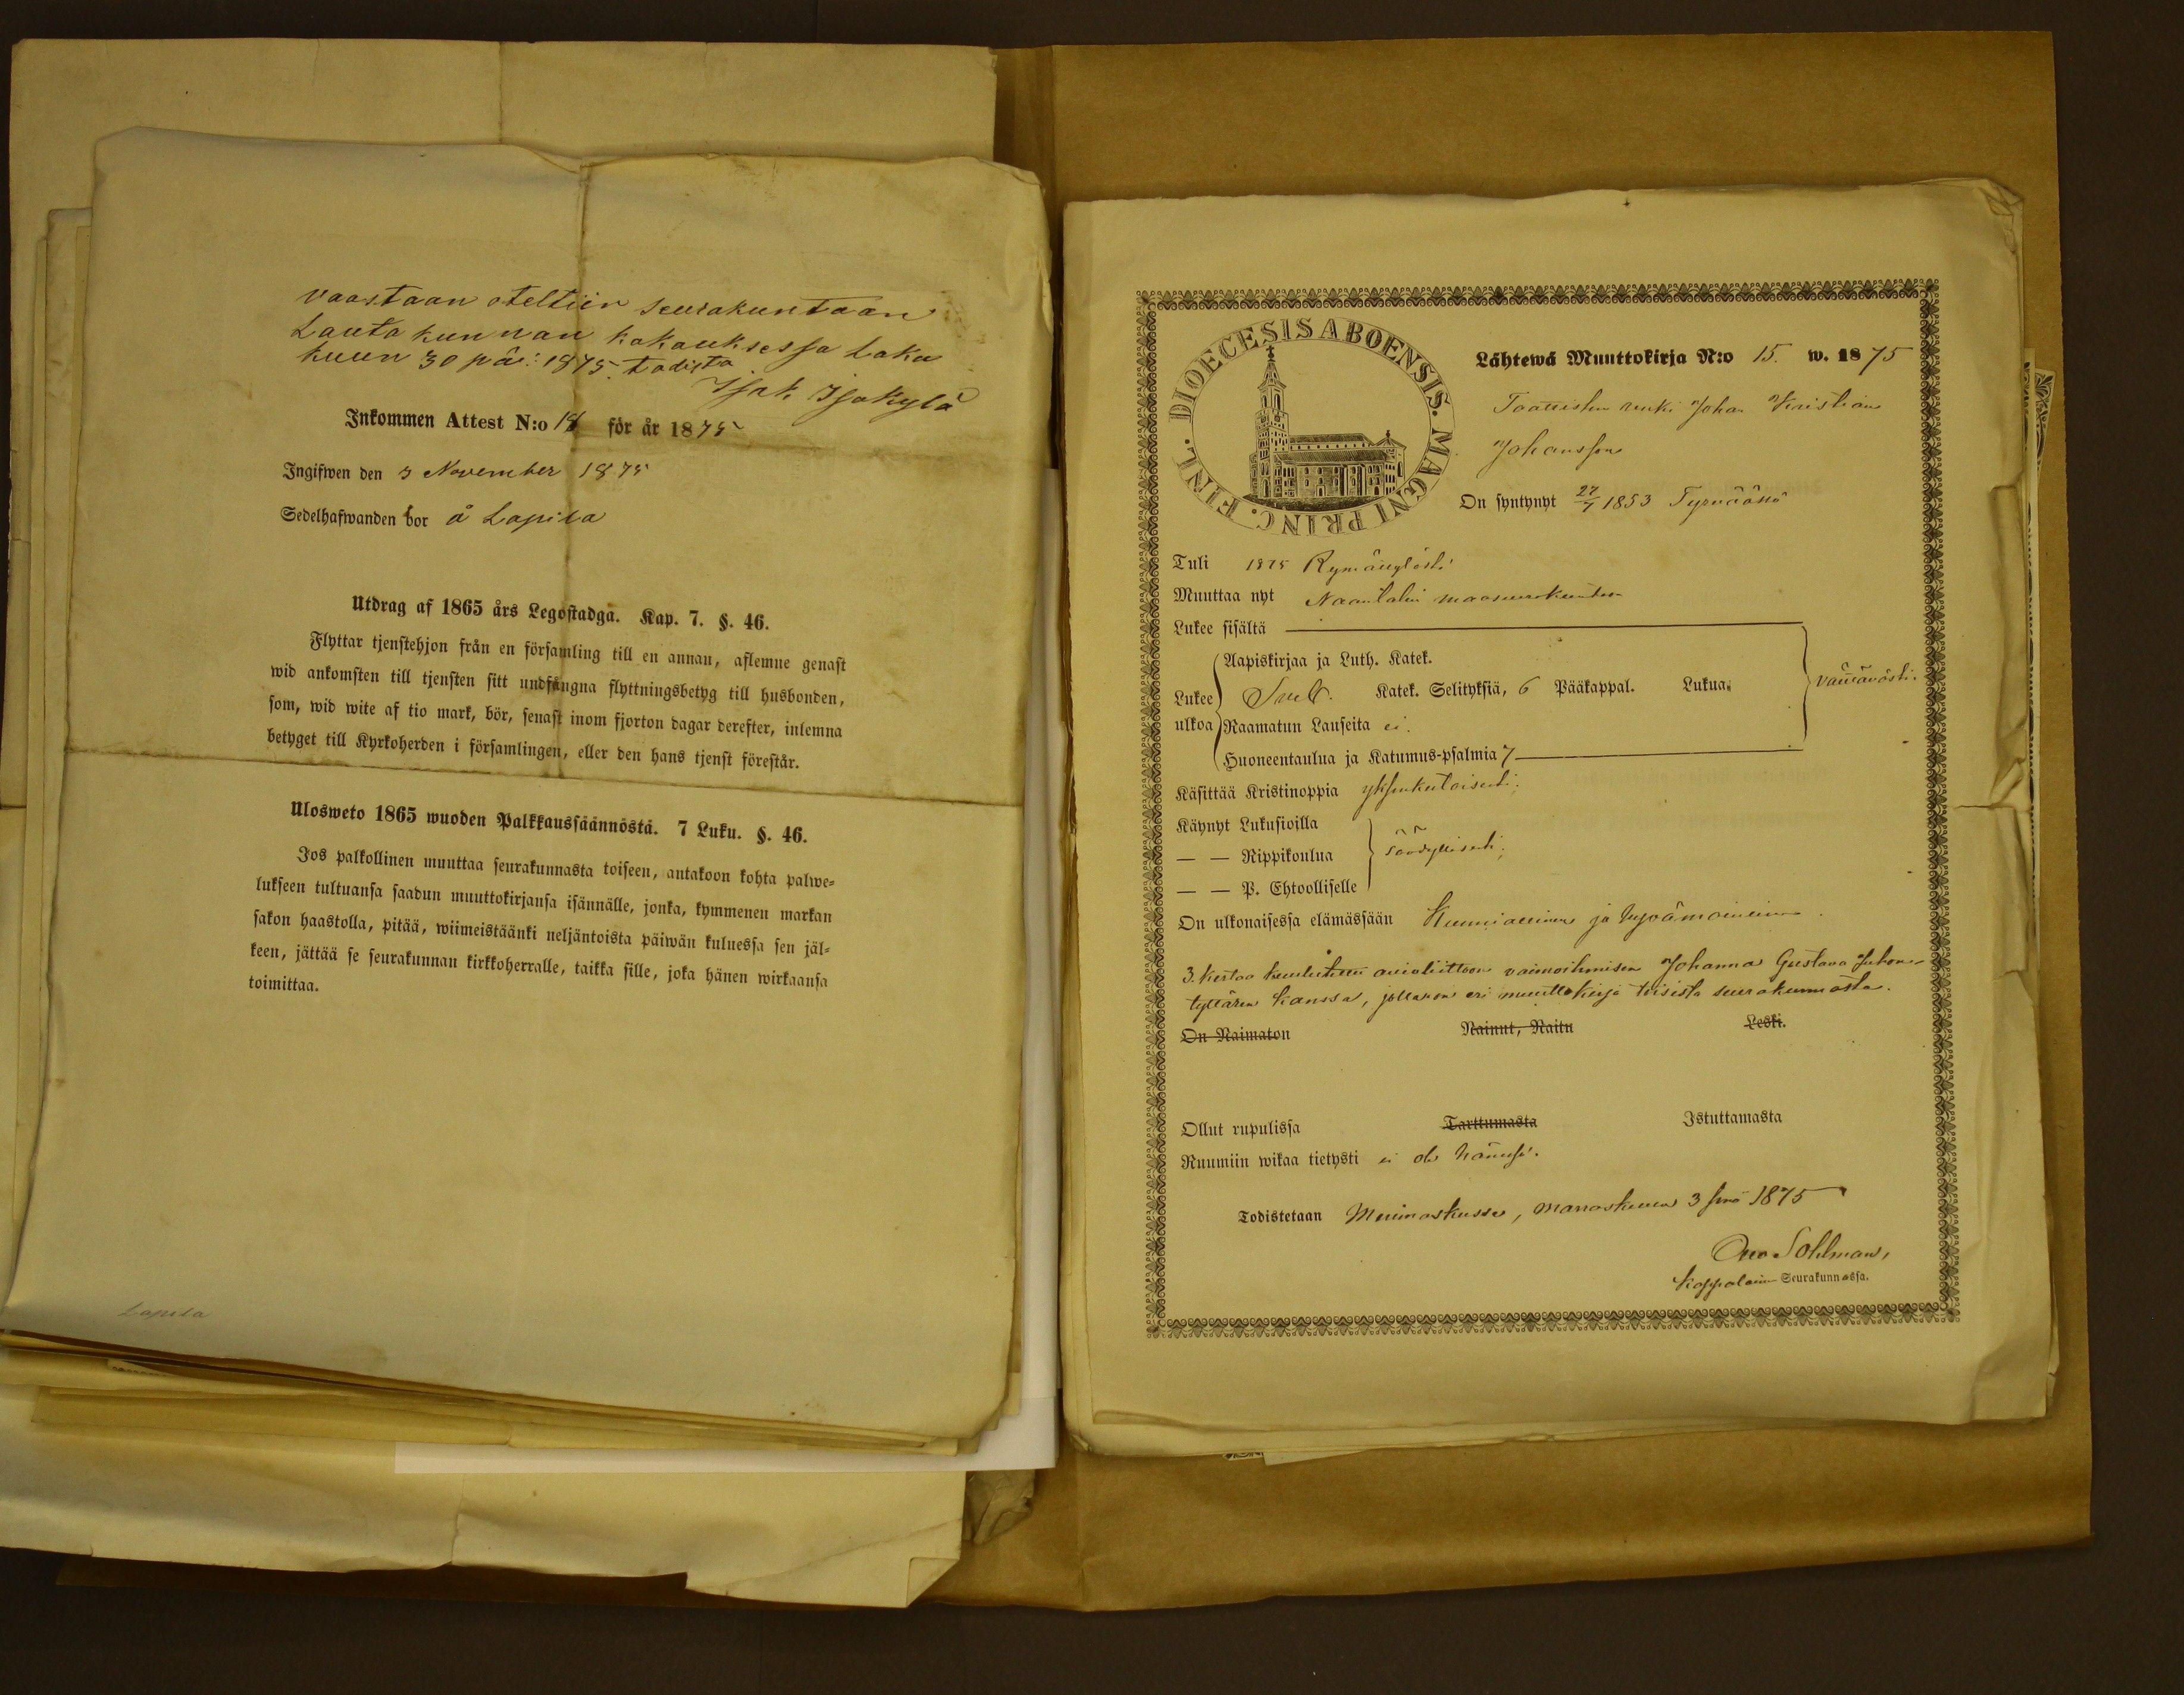 vaastaan oteltiin seurakuntaan
Lautakunnan kokouksessa Loka
kuun 30 pä: 1875. todista
Isak Isokylä
Inkommen Attest N:o 18 för år 1875
Ingifwen den 3 November 1875
Sedelhafwanden bor å Lapila
Utdrag af 1865 års Legostadga. Kap. 7. §. 46.
Flyttar tjenstehjon från en församling till en annan, aflemne genast
wid ankomsten till tjensten sitt undfångna flyttningsbetyg till husbonden,
som, wid wite af tio mark, bör, senast inom fjorton dagar derefter, inlemna
betyget till Kyrkoherden i församlingen, eller den hans tjenst förestår.
Ulosweto 1865 wuoden Palkkaussäännöstä. 7 Luku. §. 46.
Jos palkollinen muuttaa seurakunnasta toiseen, antakoon kohta palwe-
lukseen tultuansa saadun muuttokirjansa isännälle, jonka, kymmenen markan
sakon haastolla, pitää, wiimeistäänki neljäntoista päiwän kuluessa sen jäl-
keen, jättää se seurakunnan kirkkoherralle, taikka sille, joka hänen wirkaansa
toimittaa.
Lapila
FINL. DIOECESIS ABOENSIS. MAGNI PRINC.
Lähtewä Muuttokirja N:o 15. w. 1875
renki Johan Kristian
Johansson
On syntynyt 27/7 1853 Tyrväässä
Tuli 1875 Rymättylästä
Muuttaa nyt Naantalin maaseurakuntaan
Lukee sisältä
Aapiskirjaa ja Luth. Katek.
Lukee Katek. Selityksiä, 6 Pääkappal. Lukua.
ulkoa Raamatun Lauseita ei.
Huoneentaulua ja Katumus-psalmia 7
Käsittää Kristinoppia yksinkertaisesti.
Käynyt Lukusioilla
— — Rippikoulua säädyllisesti.
— — P. Ehtoolliselle
On ulkonaisessa elämässään Kunniallinen ja
3. kertaa kuulutettu avioliittoon vaimoihmisen Johanna Gustava Juhon-
tyttären kanssa, jollakin eri muuttokirja toisista seurakunnasta.
On Naimaton Nainut, Naitu Leski.
Ollut rupulissa Tarttumasta Istuttamasta
Ruumiin wikaa tietysti ei ole hänessä.
Todistetaan Merimaskussa, marraskuun 3 p:nä 1875
Sohlman,
Kappalainen Seurakunnassa.